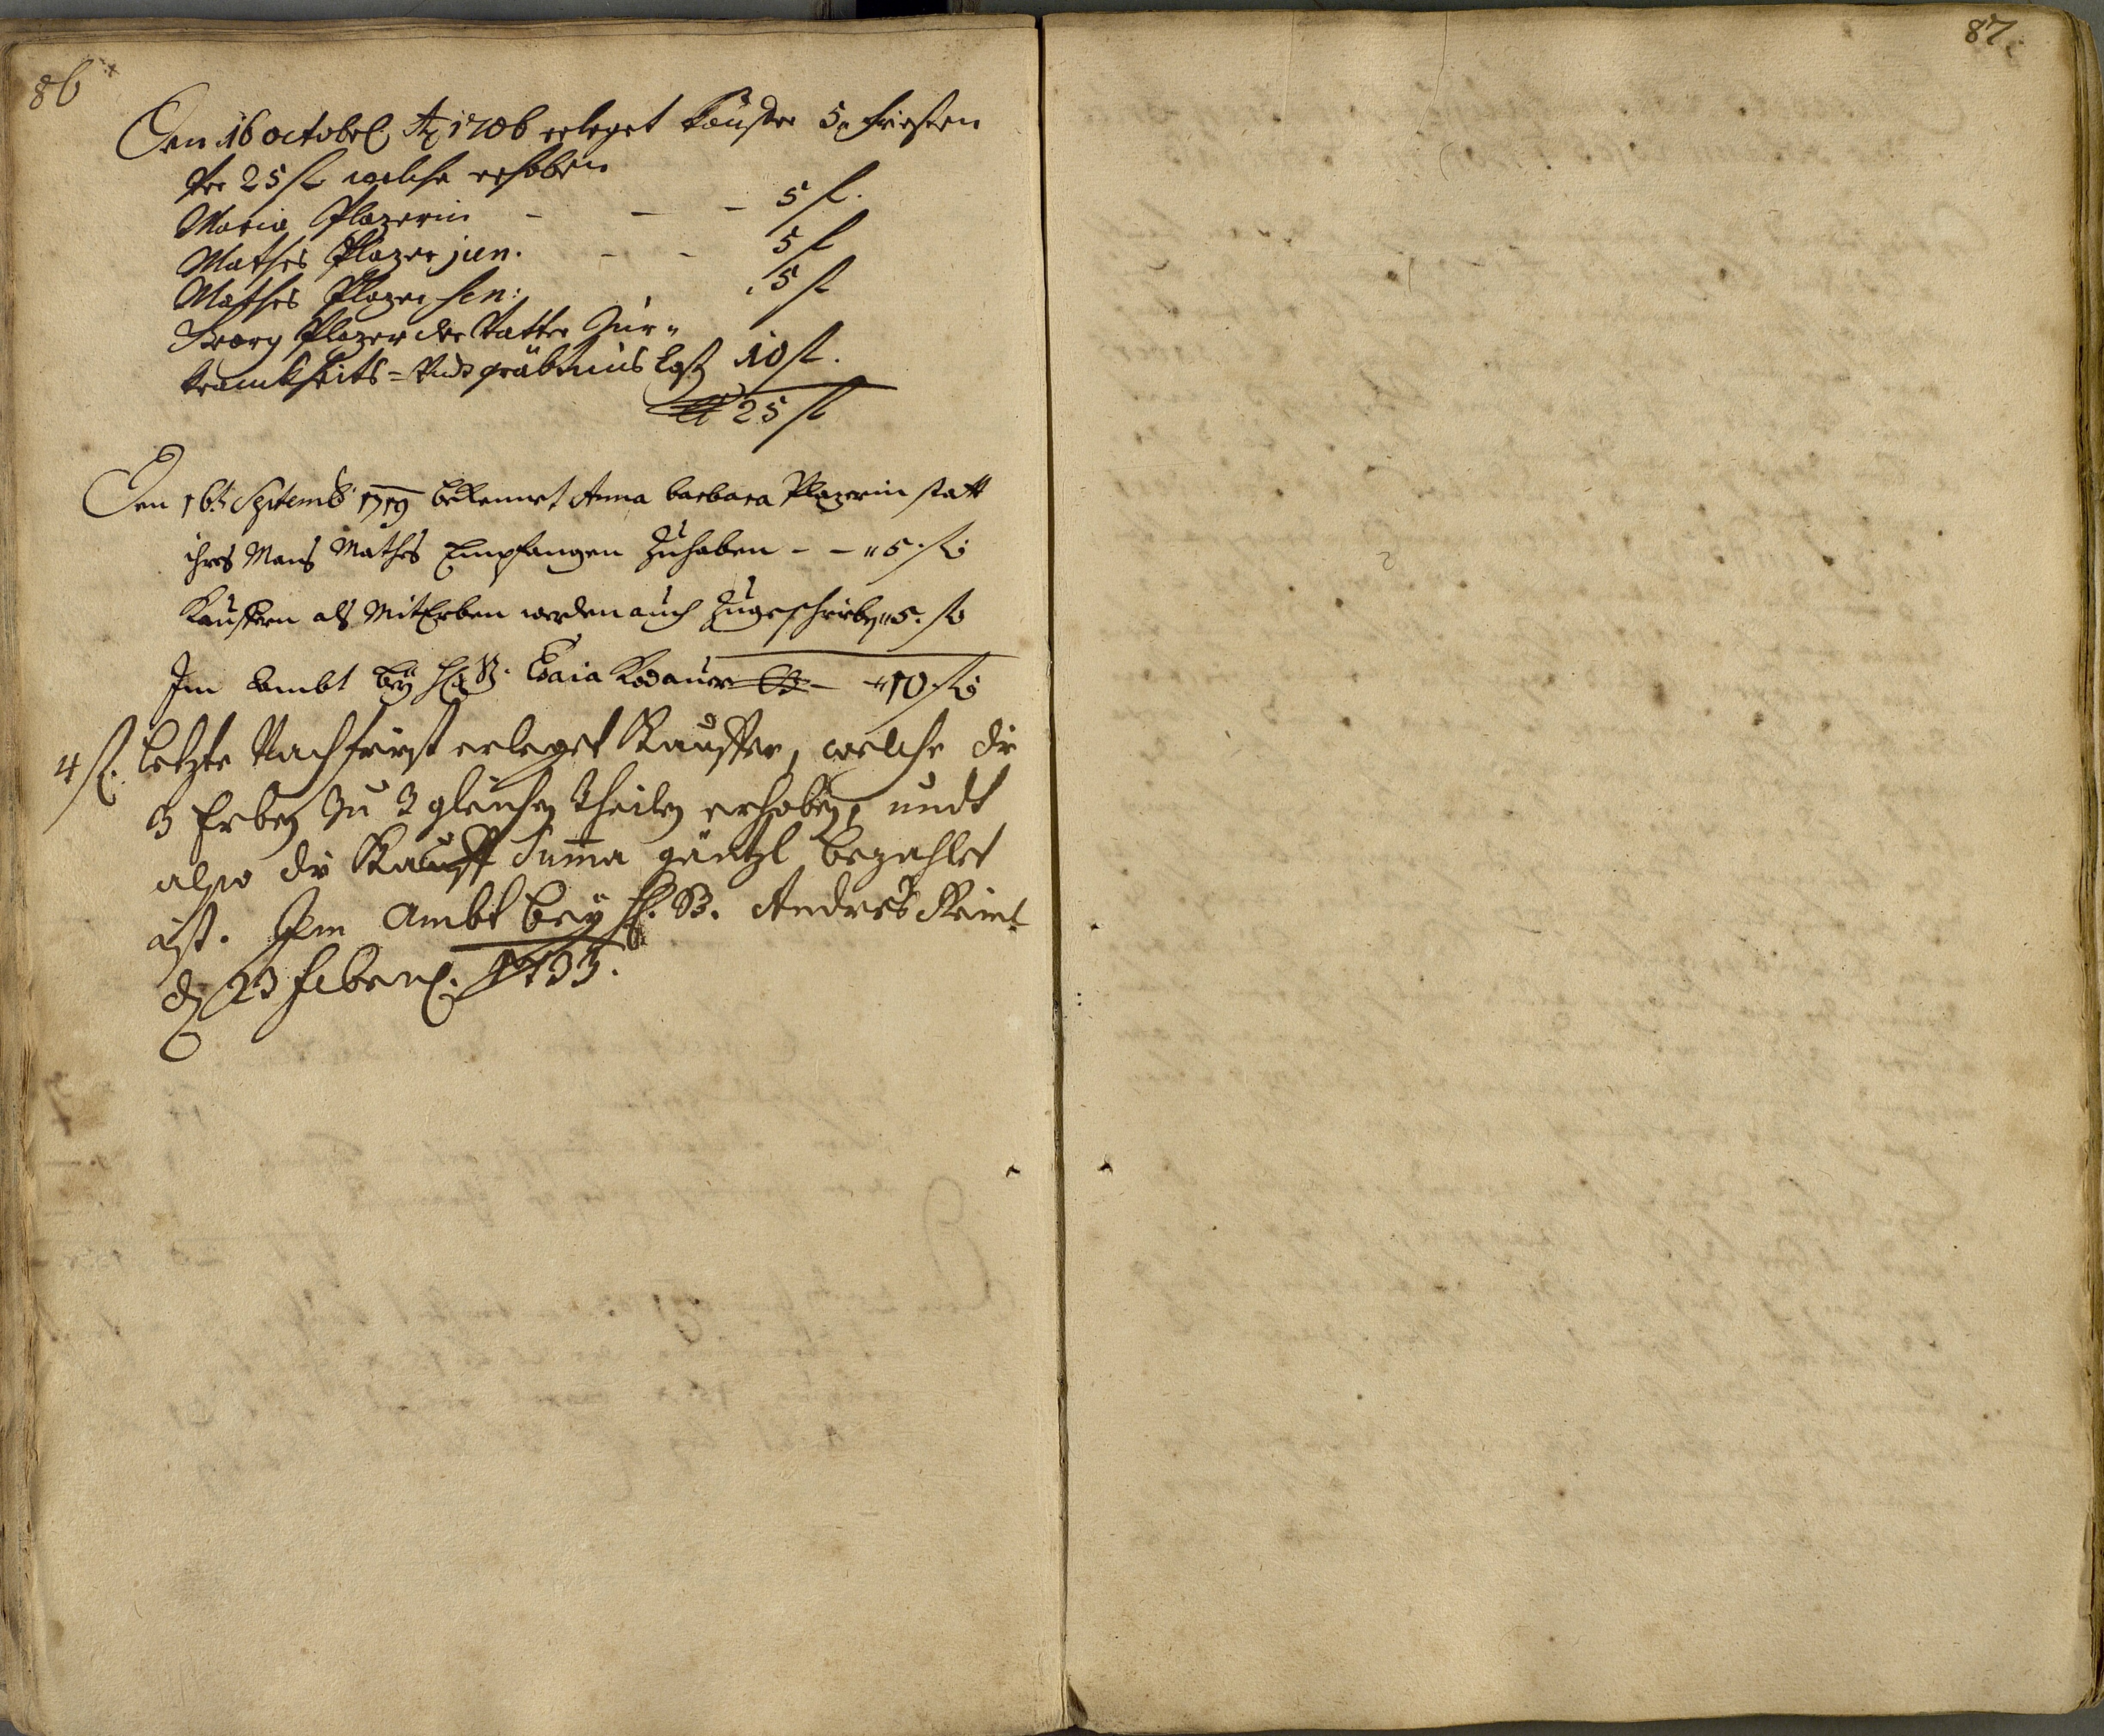 86
Den 16 octobr. Ao 1706 erleget käuffer 5 fristen
per 25 fl welche erhoben
Maria Plazerin - - - 5 fl.
Mathes Plazer jun. - - 5 fl
Mathes Plazer sen: 5 fl
Georg Plazer der Vatter Zur
kranckheits= Undt gräbnus Cost 10 fl.
25 fl
Den 16t Septemb 1719 bekennet Anna barbara Plazerin statt
ihres Mans Mathes Empfangen Zuhaben - - 5. fl
Kauffern als MitErben werden auch Zugeschrieben 5. fl
Im Ambt bey H. B. Esaia Kodauer - 10 fl
4 fl. letzte Nachfrist erleget Kauffer, welche die
3 Erben zu 3 gleichen theilen erhoben, undt
also die Kauff Summa gäntzl bezahlet
ist. Im Ambt bey H. B. Andres
d 23 Febr. 1733.
87